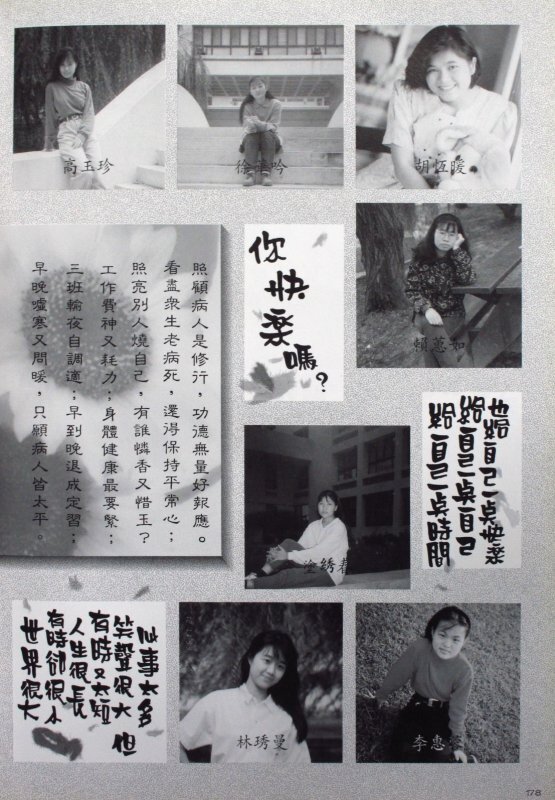 高玉珍
徐華吟
胡恆暖
你快樂嗎?
賴蕙如
照顧病人是修行,功德無量好報應。
看盡衆生老病死,還得保持平常心;
照亮別人燒自己,有誰憐香又惜玉?
工作費神又耗力;身體健康最要緊;
三班輪夜自調適;早到晚退成定習;
早晚噓寒又問暖,只願病人皆太平。
也給自己一点快樂
給自己一点自己
給自己一点時間
塗綉春
心事太多
笑聲很大 但
有時又太短
人生很長
有時卻很小
世界很大
林琇曼
李惠
178